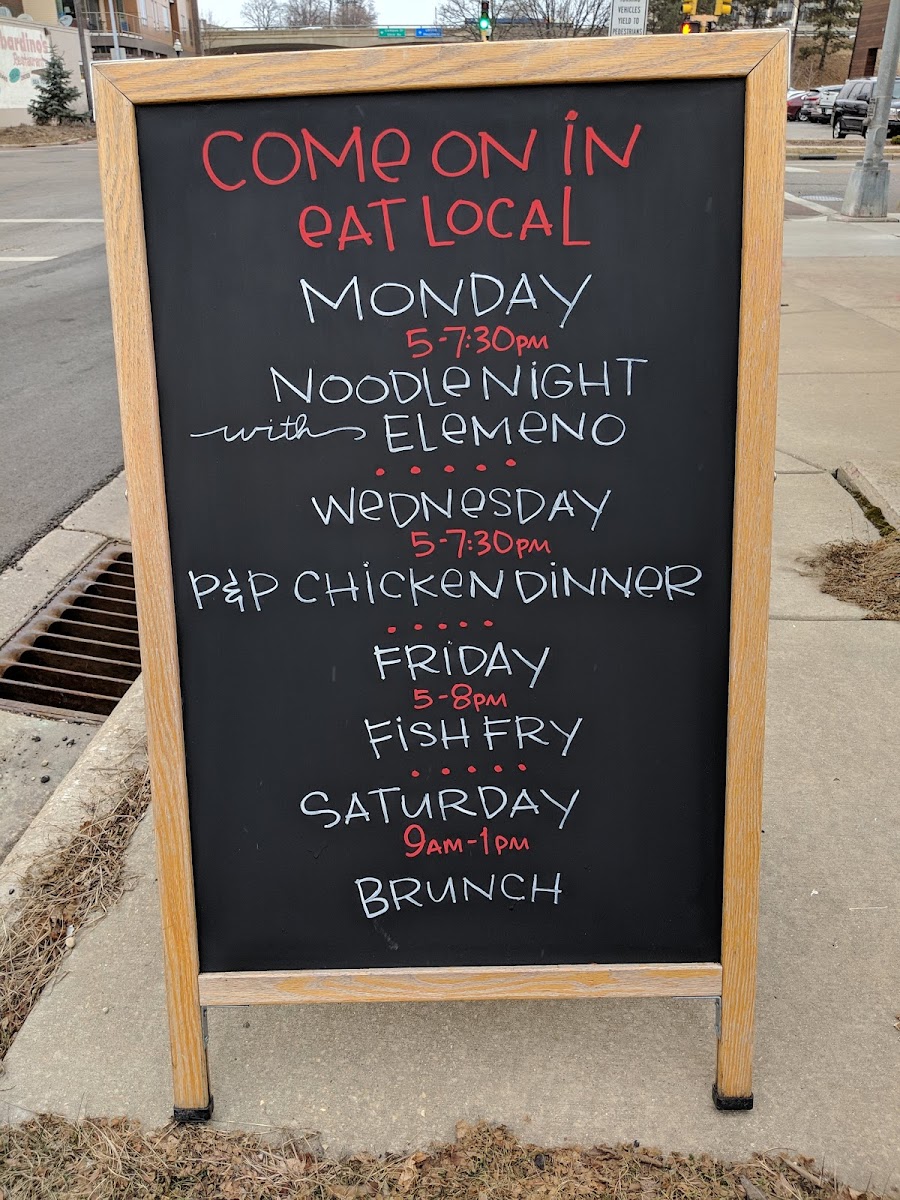 COMe ON iN
eAT LOCAL
MONDAY
5-7:30PM
NOODLe NiGHT
with ELeMeNO
WeDNeSDAY
5-7:30PM
P&P CHiCKeN DiNNeR
FRiDAY
5-8PM
FiSH FRY
SATURDAY
9AM-1PM
BRUNCH
VEHICLES
YIELD TO
PEDESTRIANS